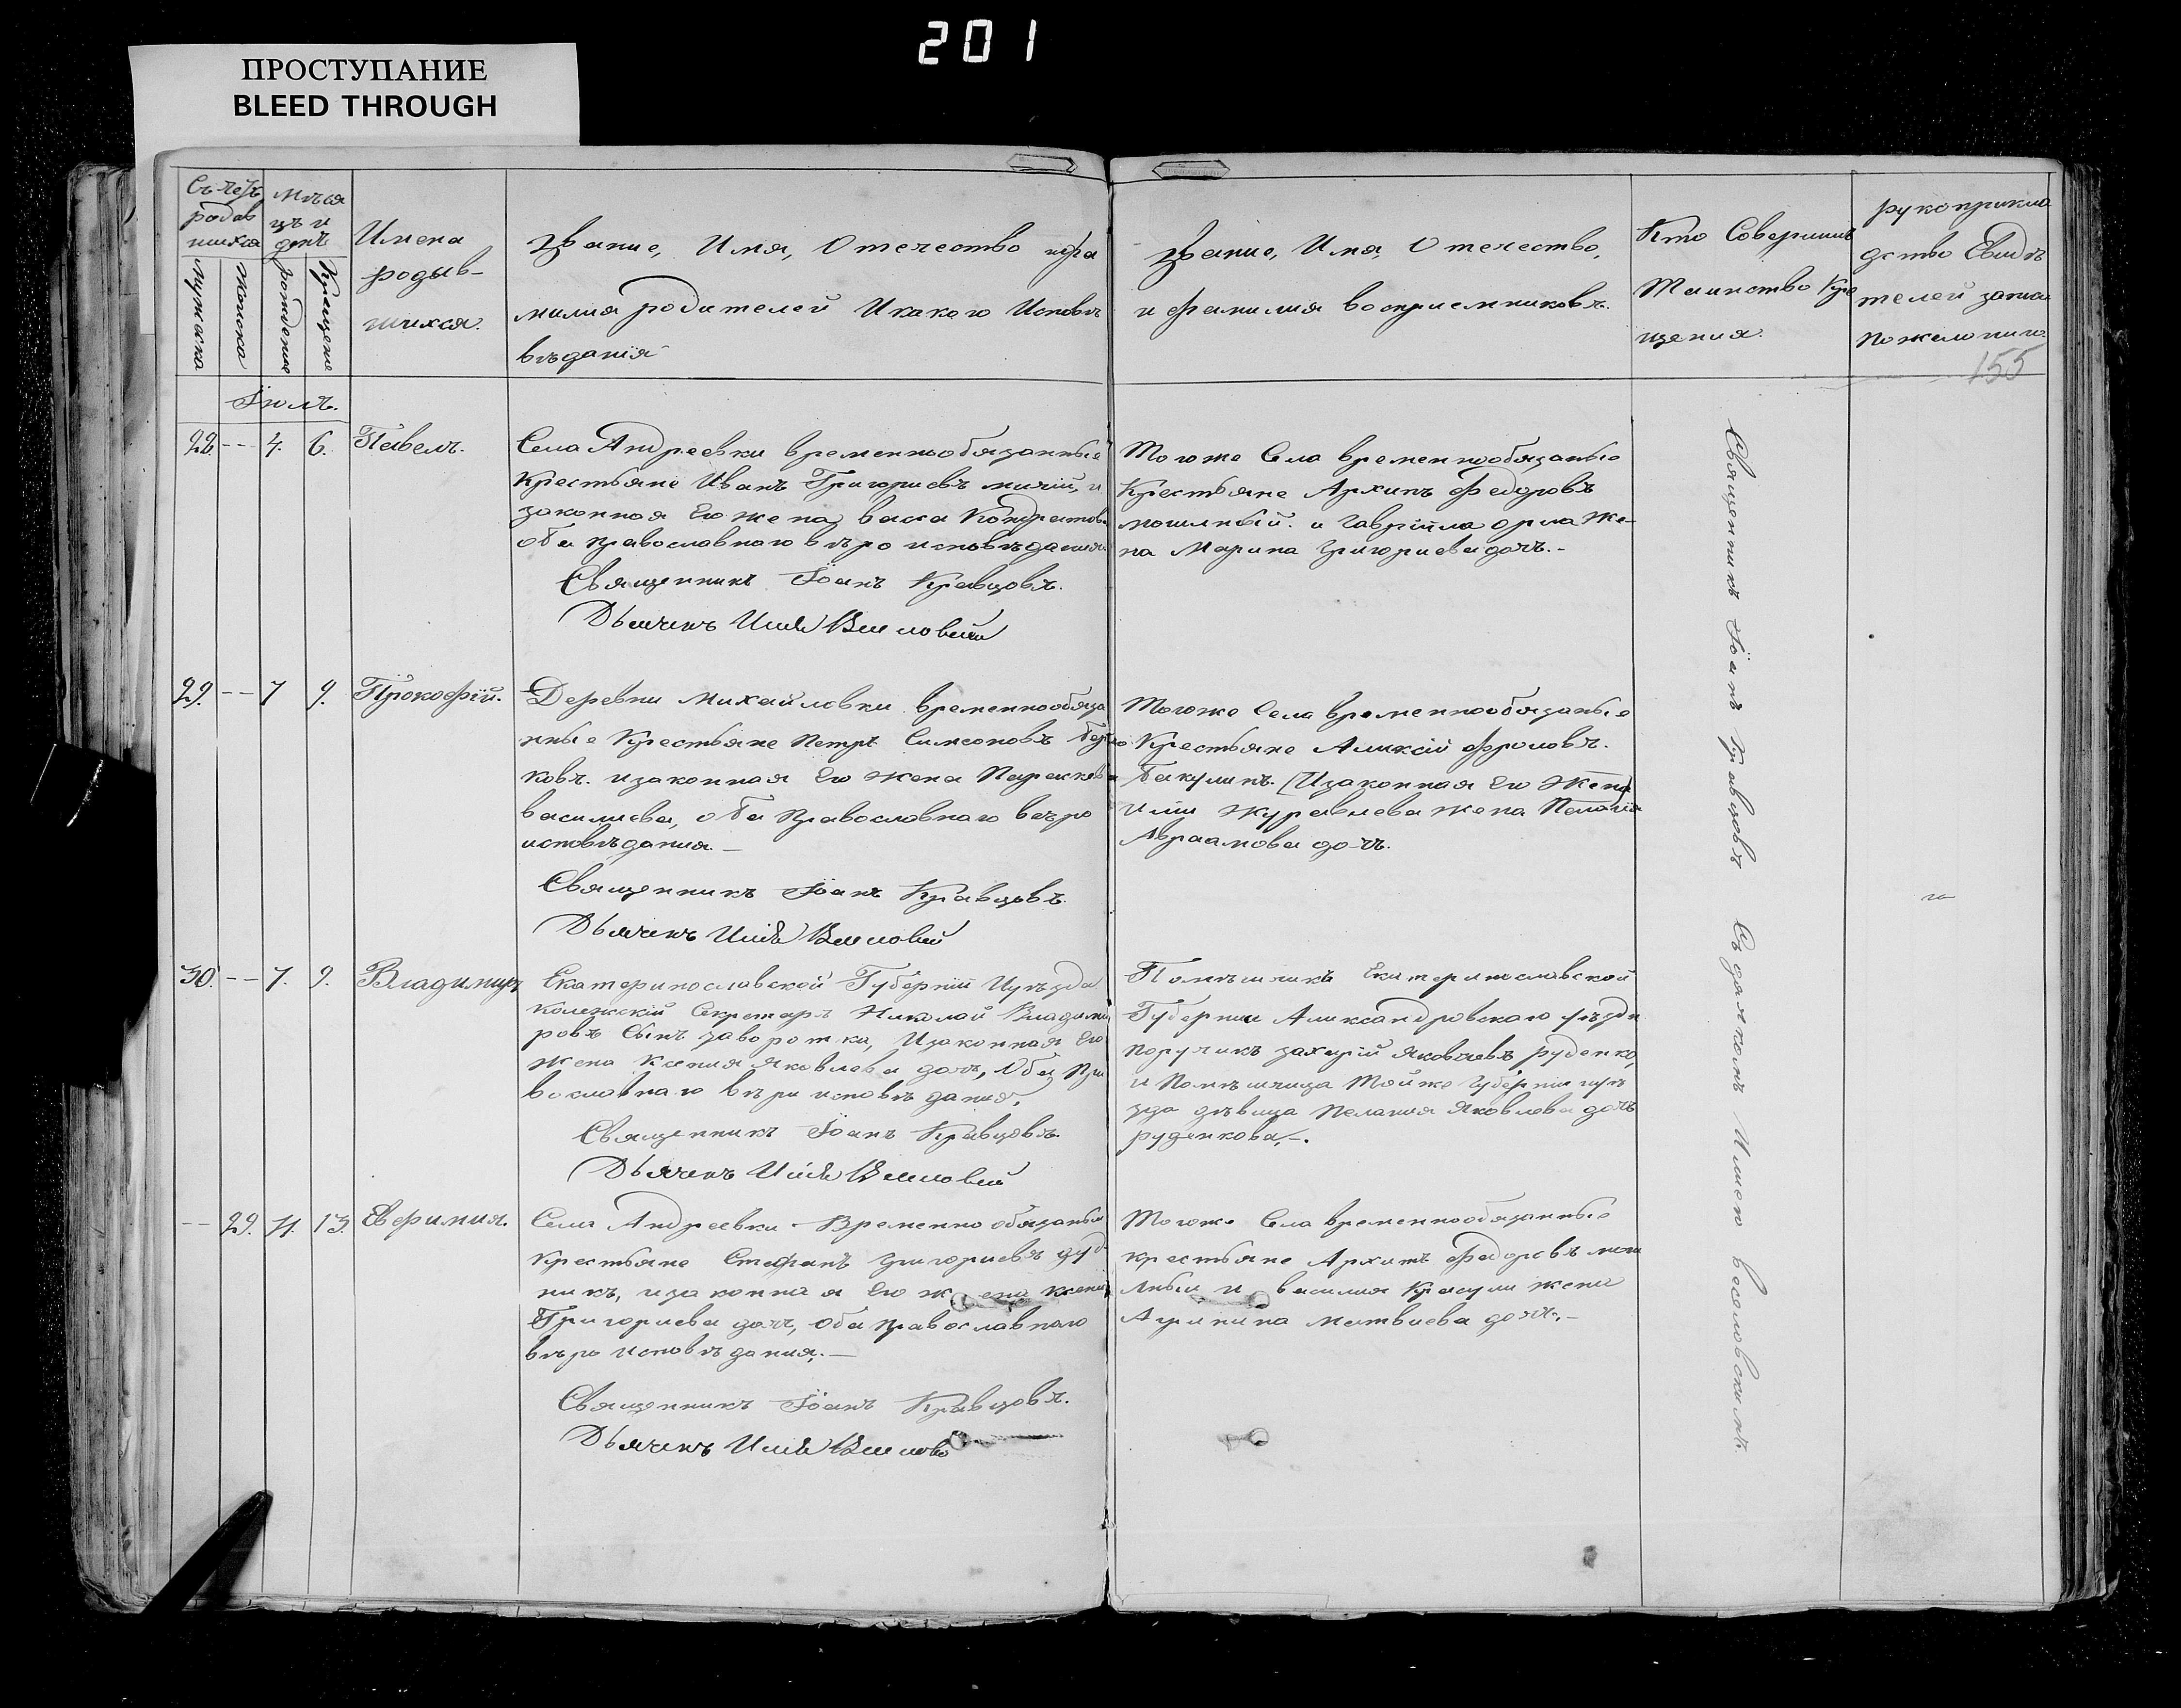 201
ПРОСТУПАНИЕ
BLEED THROUGH
Счетъ родившихся
Мужеска
Женска
Мѣсяцъ и день
рожденіе
Крещеніе
Имена
родив-
шихся.
Званіе, Имя, Отечество и фа
милия родителей И какого Испов
ѣданія
Званіе, Имя, Отечество,
и Фамилия восприемниковъ.
Кто Совершилъ
Таинство Кре
щения.
рукоприкла
дство Свидѣ
телей записи
по желанию.
155
Іюль.
22. -- 4. 6. Павелъ.
Села Андреевки временнообязанные
Крестьяне Иванъ Григориевъ и
законная Его жена васса Кондратова
оба православнаго вѣроисповѣдания
Священникъ Іоанъ Кравцовъ.
Дьячекъ Илія Веселовскій
Тогоже Села временнообязаные
Крестьяне Архипъ Федоровъ
могилный. и Гавріила орла Же-
на Марина Григориева дочъ.-
29. -- 7 9. Прокофій.
Деревни Михайловки временнообяза
нные Крестьяне Петръ Симеоновъ
ковъ. и законная Его жена Параскева
василиева, оба Православнаго вѣро
исповѣдания.-
Священникъ Іоанъ Кравцовъ.
Дьячекъ Илія Веселовскій
Тогоже Села временнообязаные
Крестьяне Аликсій Фроловъ.
Бакулинъ. (И законная Его Жена)
Илии Журавлева жена Пелагія
Авраамова дочъ.
30. -- 7. 9. Владимиръ
Екатеринославской Губерніи И уѣзда
колежскій Секретарь Николай Владими
ровъ Сынъ заворотка, И законная Его
жена Ксения Яковлева дочъ, Оба Пра
вославнаго вѣри исповѣдания.
Священникъ Іоанъ Кравцовъ.
Дьячекъ Илія Веселовскій
Помѣщикъ Екатеринославской
Губернии Александровскаго уѣзда
поручикъ захарій Яковлевъ руденко,
и Помѣщица Тойже Губерніи и уѣ
зда дѣвица Пелагия Яковлева дочъ
руденкова,-.
-- 29. 11. 13. Евфимия.
Села Андреевки Временно обязаные
крестьяне Стефанъ Григориевъ дуд
никъ, и законная Его жена ксения
Григориева дочъ, оба православнаго
вѣро исповѣдания;-
Священникъ Іоанъ Кравцовъ.
Дьячекъ Илія Веселовс
Тогоже Села временнообязанные
крестьяне Архипъ Федоровъ моги
лный и василия Красули жена
Агрипина Матвиева дочъ.-
Священникъ Іоанъ Кравцовъ Съ дьякомъ Илиею веселовскимъ.